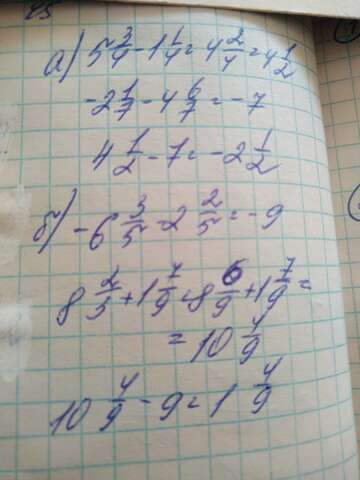 а) 5 3/4 - 1 1/4 = 4 2/4 = 4 1/2
-2 1/7 - 4 6/7 = -7
4 1/2 - 7 = -2 1/2
б) -6 3/5 - 2 2/5 = -9
8 2/3 + 1 7/9 = 8 6/9 + 1 7/9 =
= 10 4/9
10 4/9 - 9 = 1 4/9